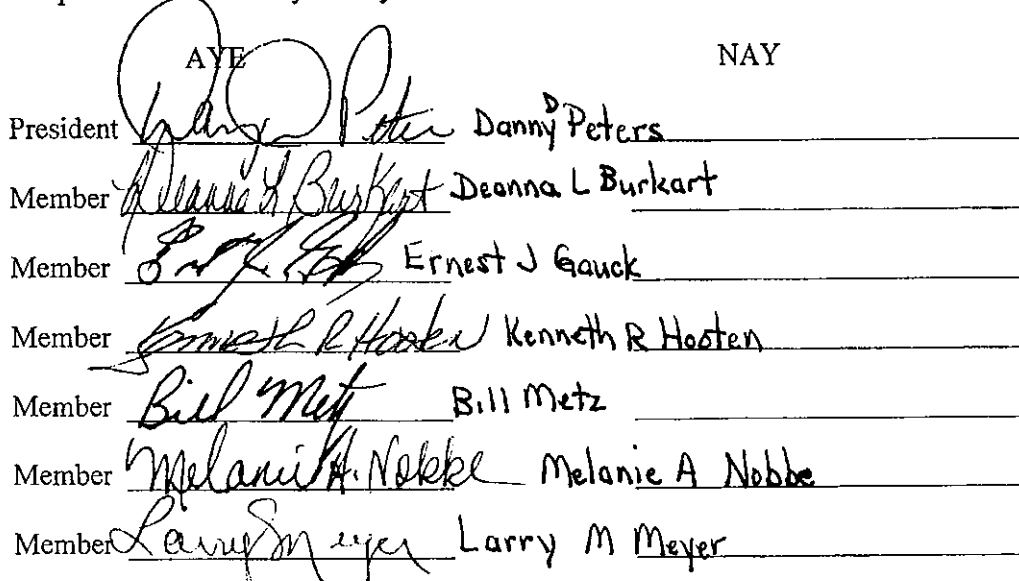 AYE NAY
President Danny Peters Danny D Peters
Member Deanna L Burkart Deanna L Burkart
Member Ernest J Gauck
Member Kenneth R Hooten Kenneth R Hooten
Member Bill Metz Bill Metz
Member Melanie A. Nobbe Melanie A Nobbe
Member Larry M Meyer Larry M Meyer